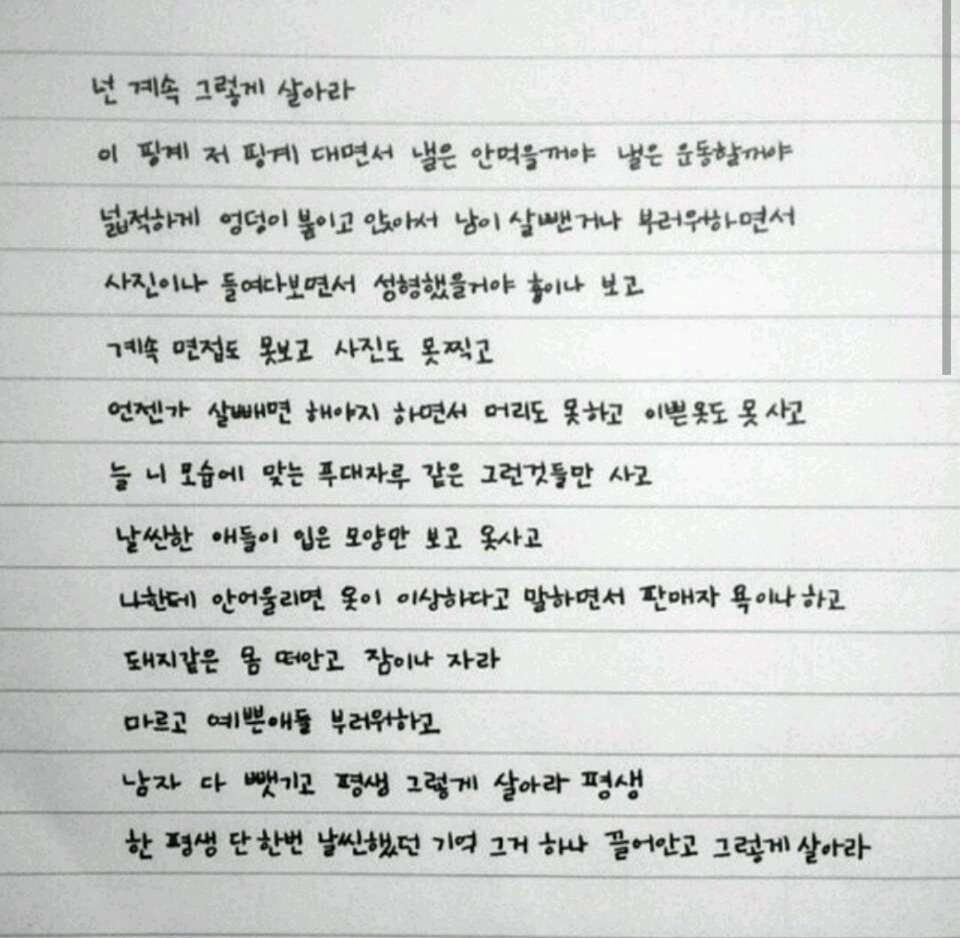 넌 계속 그렇게 살아라
이 핑계 저 핑계 대면서 낼은 안먹을꺼야 낼은 운동할꺼야
넓적하게 엉덩이 붙이고 앉아서 남이 살뺀거나 부러워하면서
사진이나 들여다보면서 성형했을거야 흉이나 보고
계속 면접도 못보고 사진도 못찍고
언젠가 살빼면 해야지 하면서 머리도 못하고 이쁜옷도 못 사고
늘 니 모습에 맞는 푸대자루 같은 그런것들만 사고
날씬한 애들이 입은 모양만 보고 옷사고
나한테 안어울리면 옷이 이상하다고 말하면서 판매자 욕이나 하고
돼지같은 몸 떠안고 잠이나 자라
마르고 예쁜애들 부러워하고
남자 다 뺏기고 평생 그렇게 살아라 평생
한 평생 단 한번 날씬했던 기억 그거 하나 끌어안고 그렇게 살아라